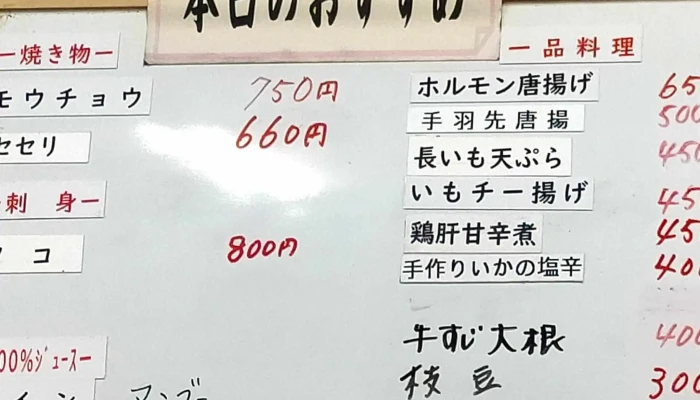 本日のおすすめ
ー焼き物ー
モウチョウ 750円
セセリ 660円
刺 身ー
コ 800円
00%ジュースー
マンゴー
一品料理
ホルモン唐揚げ 65
手羽先唐揚 500
長いも天ぷら 450
いもチー揚げ 45
鶏肝甘辛煮 45
手作りいかの塩辛 40
牛すじ大根 400
枝豆 300